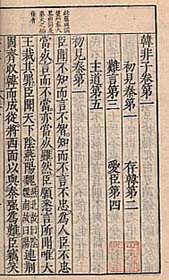 韓非子卷第一
初見秦第一　存韓第二
難言第三　愛臣第四
主道第五
初見秦第一
臣聞不知而言不智知而不言不忠為人臣不忠
當死言而不當亦當死雖然臣願悉言所聞唯大
王裁其罪臣聞天下陰燕陽魏燕北故曰陰魏南故曰陽連荆
固齊收韓而成從將西面以與秦強為難臣竊笑